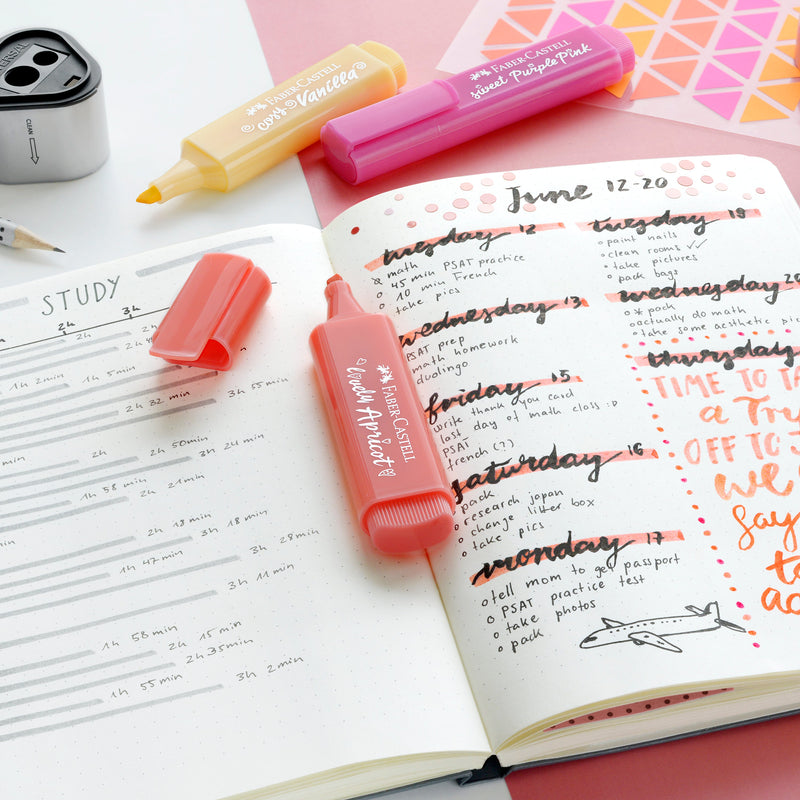 FABER-CASTELL
cosy Vanilla
FABER-CASTELL
sweet Purple Pink
CLEAN
STUDY
2h
2h
3h
2h
1h 2min
2h
3h 55min
2h 32 min
2h
2h 50min
3h 24 min
1h 58 min
2h 21min
2h 18 min
3h 18 min
1h 47 min
3h 28min
3h 11 min
1h 58 min
2h 15 min
2h 35min
1h 55 min
3h 2min
FABER-CASTELL
lovely Apricot
June 12-20
tuesday 12
math
45 min PSAT practice
10 min French
take pics
wednesday 13
PSAT prep
math homework
duolingo
friday 15
write thank you card
last day of math class :D
PSAT
french (?)
saturday 16
pack
research japan
change litter box
take pics
monday 17
tell mom to get passport
PSAT practice test
take photos
pack
tuesday 19
paint nails
clean rooms ✓✓
take pictures
pack bags
wednesday 20
* pack
actually do math
take some aesthetic pic
thursday
TIME TO TA
a Tr
OFF TO J
we
say
to